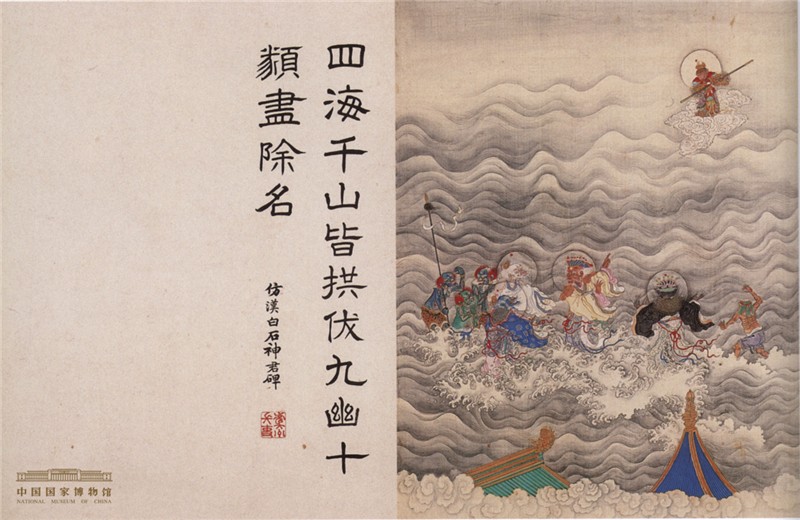 四海千山皆拱伏九幽十
類盡除名
仿漢白石神君碑
中国国家博物馆
NATIONAL MUSEUM OF CHINA